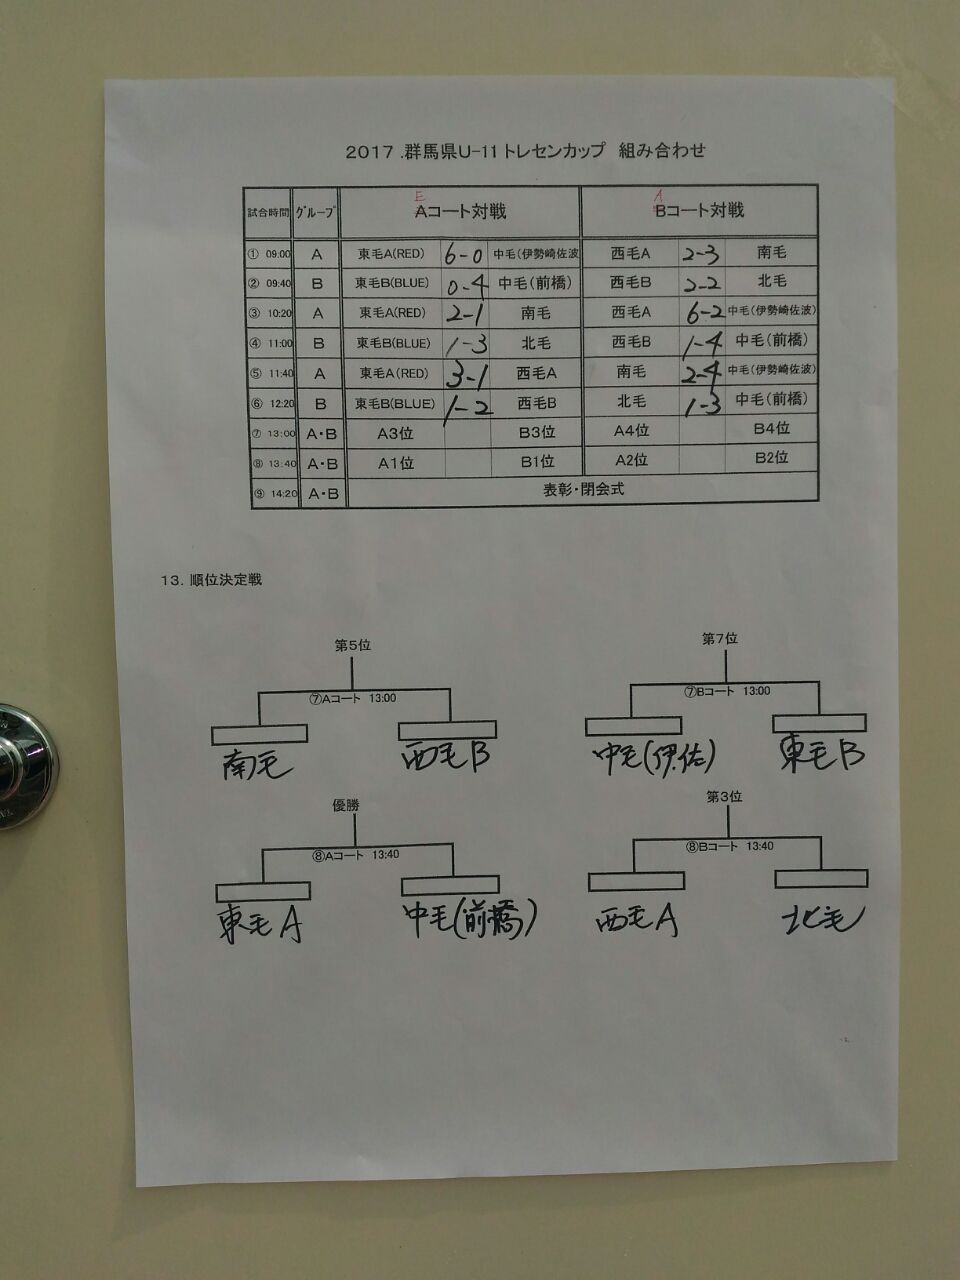 2017.群馬県U-11トレセンカップ 組み合わせ
試合時間 グループ Aコート対戦 Bコート対戦
E A
① 09:00 A 東毛A(RED) 6-0 中毛(伊勢崎佐波 西毛A 2-3 南毛
② 09:40 B 東毛B(BLUE) 0-4 中毛(前橋) 西毛B 2-2 北毛
③ 10:20 A 東毛A(RED) 2-1 南毛 西毛A 6-2 中毛(伊勢崎佐波)
④ 11:00 B 東毛B(BLUE) 1-3 北毛 西毛B 1-4 中毛(前橋)
⑤ 11:40 A 東毛A(RED) 3-1 西毛A 南毛 2-4 中毛(伊勢崎佐波)
⑥ 12:20 B 東毛B(BLUE) 1-2 西毛B 北毛 1-3 中毛(前橋)
⑦ 13:00 A・B A3位 B3位 A4位 B4位
⑧ 13:40 A・B A1位 B1位 A2位 B2位
⑨ 14:20 A・B 表彰・閉会式
13.順位決定戦
第5位 第7位
⑦Aコート 13:00 ⑦Bコート 13:00
南毛 西毛B 中毛(伊佐) 東毛B
優勝 第3位
⑧Aコート 13:40 ⑧Bコート 13:40
東毛A 中毛(前橋) 西毛A 北毛